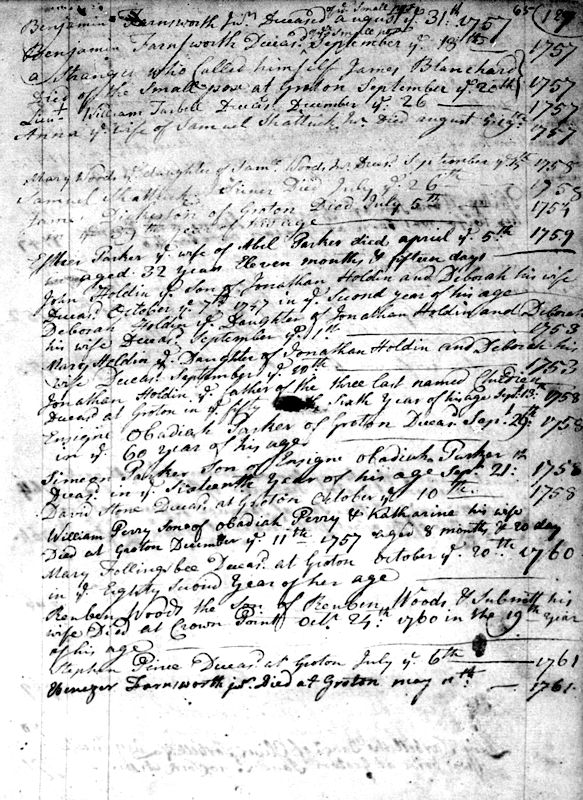 65 189
of ye Small pox
Benjamin Farnsworth Junr Deceased august ye 31th 1757
of ye Small pox
Benjamin Farnsworth Deceasd September ye 18th 1757
a Stranger who Called himself James Blanchard
Died of the Small pox at Groton September ye 20th 1757
Lieut William Tarbell Deceasd December ye 26 1757
Anna ye wife of Samuel Shattuck Junr Died august 1757
Mary Woods ye daughter of Woods Deceasd September ye 1758
Samuel Shattuck Juner Died July ye 26th 1758
Jame Dickeston of Groton Died July 5th 1754
in ye year of his age
Esther Parker ye wife of Abel Parker died april ye 5th 1759
aged 32 years Eleven month, & fifteen days
John Holdin ye Son of Jonathan Holdin and Deborah his wife
Deceasd October ye 7th 1757 in ye Second year of his age
Deborah Holdin ye Daughter of Jonathan Holdin and Deborah
his wife Deceasd September ye 1st 1758
Mary Holdin ye Daughter of Jonathan Holdin and Deborah his
wife Deceasd September ye 1753
Jonathan Holdin ye father of the three last named Children
Deceasd at Groton in ye fifty Sixth year of his age Sept 13: 1758
Ensigne Obadiah Parker of Groton Deceasd Sept 29: 1758
in ye 60 year of his age
Simeon Parker Son of Ensigne Obadiah Parker
Deceasd in ye Sixteenth year of his age Sept 21: 1758
David Stone Deceasd at Groton October ye 10th 1758
William Perry Son of Obadiah Perry & Katharine his wife
Died at Groton December ye 11th 1757 aged 8 months & 20 day
Mary Follingsbee Deceasd at Groton october ye 20th 1760
in ye Eighty Second year of her age
Reuben Woods the Son of Reuben Woods & Submitt his
wife Died at Crown Point Octr 24th 1760 in the 19th year
of his age
Stephen Peirce Deceasd at Groton July ye 6th 1761
Ebenezer Farnsworth jur Died at Groton may 1761